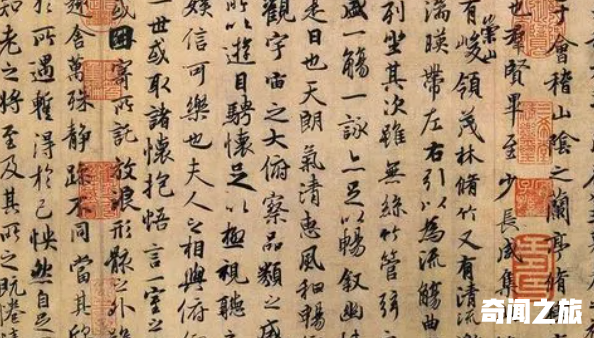 于會稽山陰之蘭亭脩
也羣賢畢至少長咸集
有崇山峻領茂林脩竹又有清流
湍暎帶左右引以為流觴曲
列坐其次雖無絲竹管弦
盛一觴一詠亦足以暢敘幽
是日也天朗氣清惠風和暢
觀宇宙之大俯察品類之盛
所以遊目騁懷足以極視聽之
娛信可樂也夫人之相與俯仰
一世或取諸懷抱悟言一室之
或因寄所託放浪形骸之外雖
趣舍萬殊靜躁不同當其欣
於所遇蹔得於己怏然自足
知老之將至及其所之既惓情
奇闻之旅